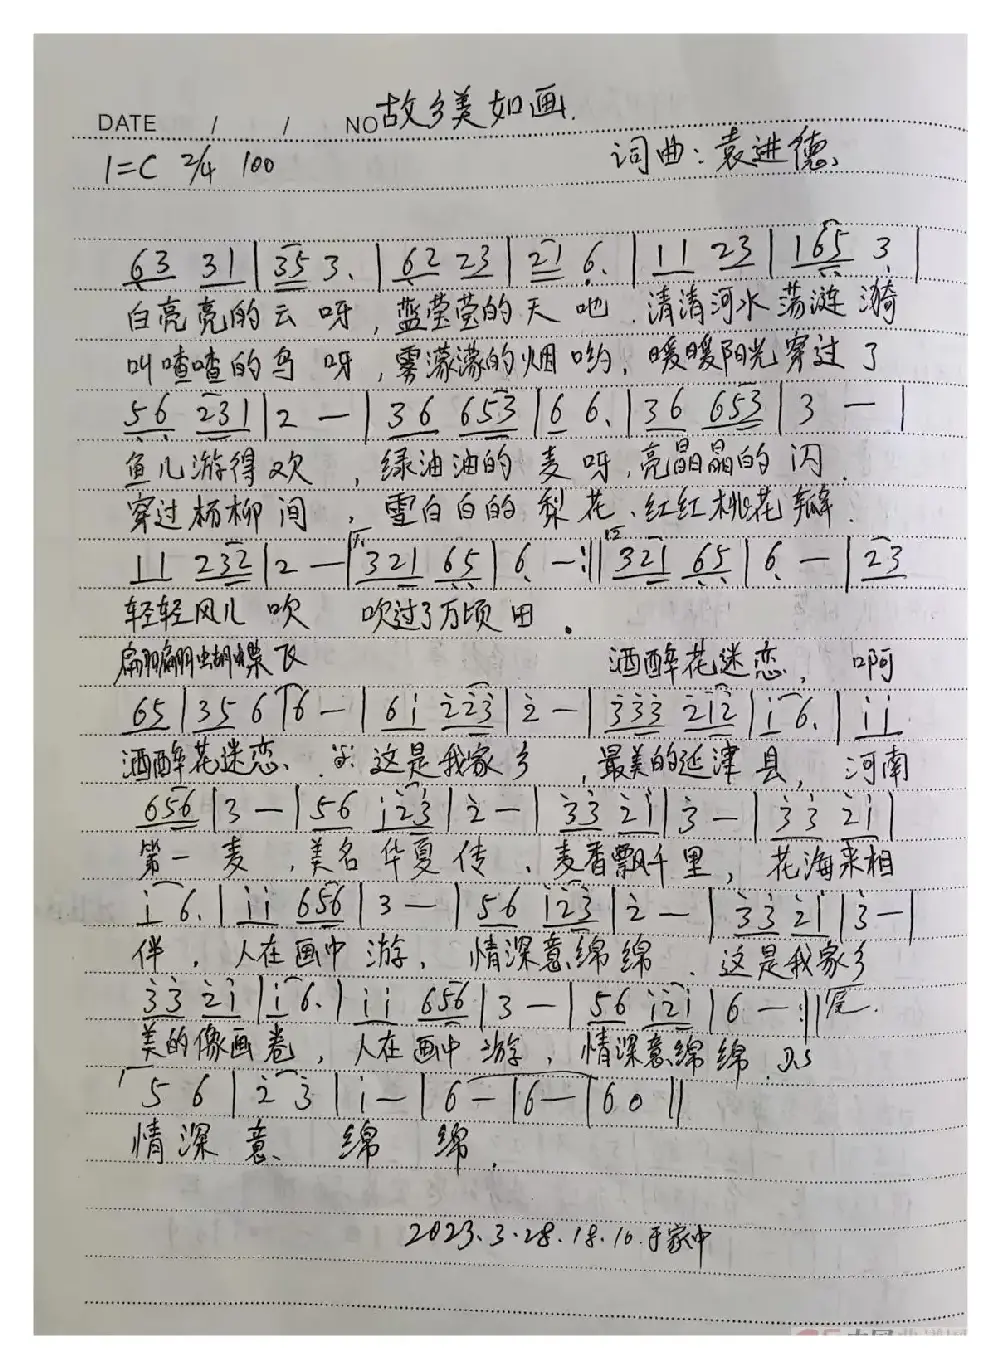 故乡美如画.
DATE / / NO
1=C 2/4 100 词曲:袁进德
63 31 | 35 3. | 62 23 | 21 6. | 11 23 | 165 3 |
白亮亮的云呀,蓝莹莹的天吔.清清河水荡涟漪
叫喳喳的鸟呀,雾濛濛的烟哟,暖暖阳光穿过了
56 231 | 2 — | 36 653 | 6 6. | 36 653 | 3 — |
鱼儿游得欢,绿油油的麦呀,亮晶晶的闪.
穿过杨柳间,雪白白的梨花、红红桃花瓣.
11 232 | 2 — | 321 65 | 6. — :|| 321 65 | 6 — | 23
轻轻风儿吹 吹过了万顷田.
翩翩蝴蝶飞 洒醉花迷恋, 啊
65 | 35 6 | 6 — | 6i 223 | 2 — | 333 212 | i 6. | ii
洒醉花迷恋、 这是我家乡,最美的延津县,河南
656 | 3 — | 56 i23 | 2 — | 33 2i | 3 — | 33 2i |
第一麦,美名华夏传、麦香飘千里,花海来相
i 6. | ii 656 | 3 — | 56 i23 | 2 — | 33 2i | 3 — |
伴,人在画中游、情深意绵绵.这是我家乡
33 2i | i 6. | ii 656 | 3 — | 56 i2i | 6 — :|| 尾.
美的像画卷,人在画中游,情深意绵绵. D.S
5 6 | 2 3 | i — | 6 — | 6 — | 6 0 ||
情深意绵绵.
2023.3.28.18.10.于家中